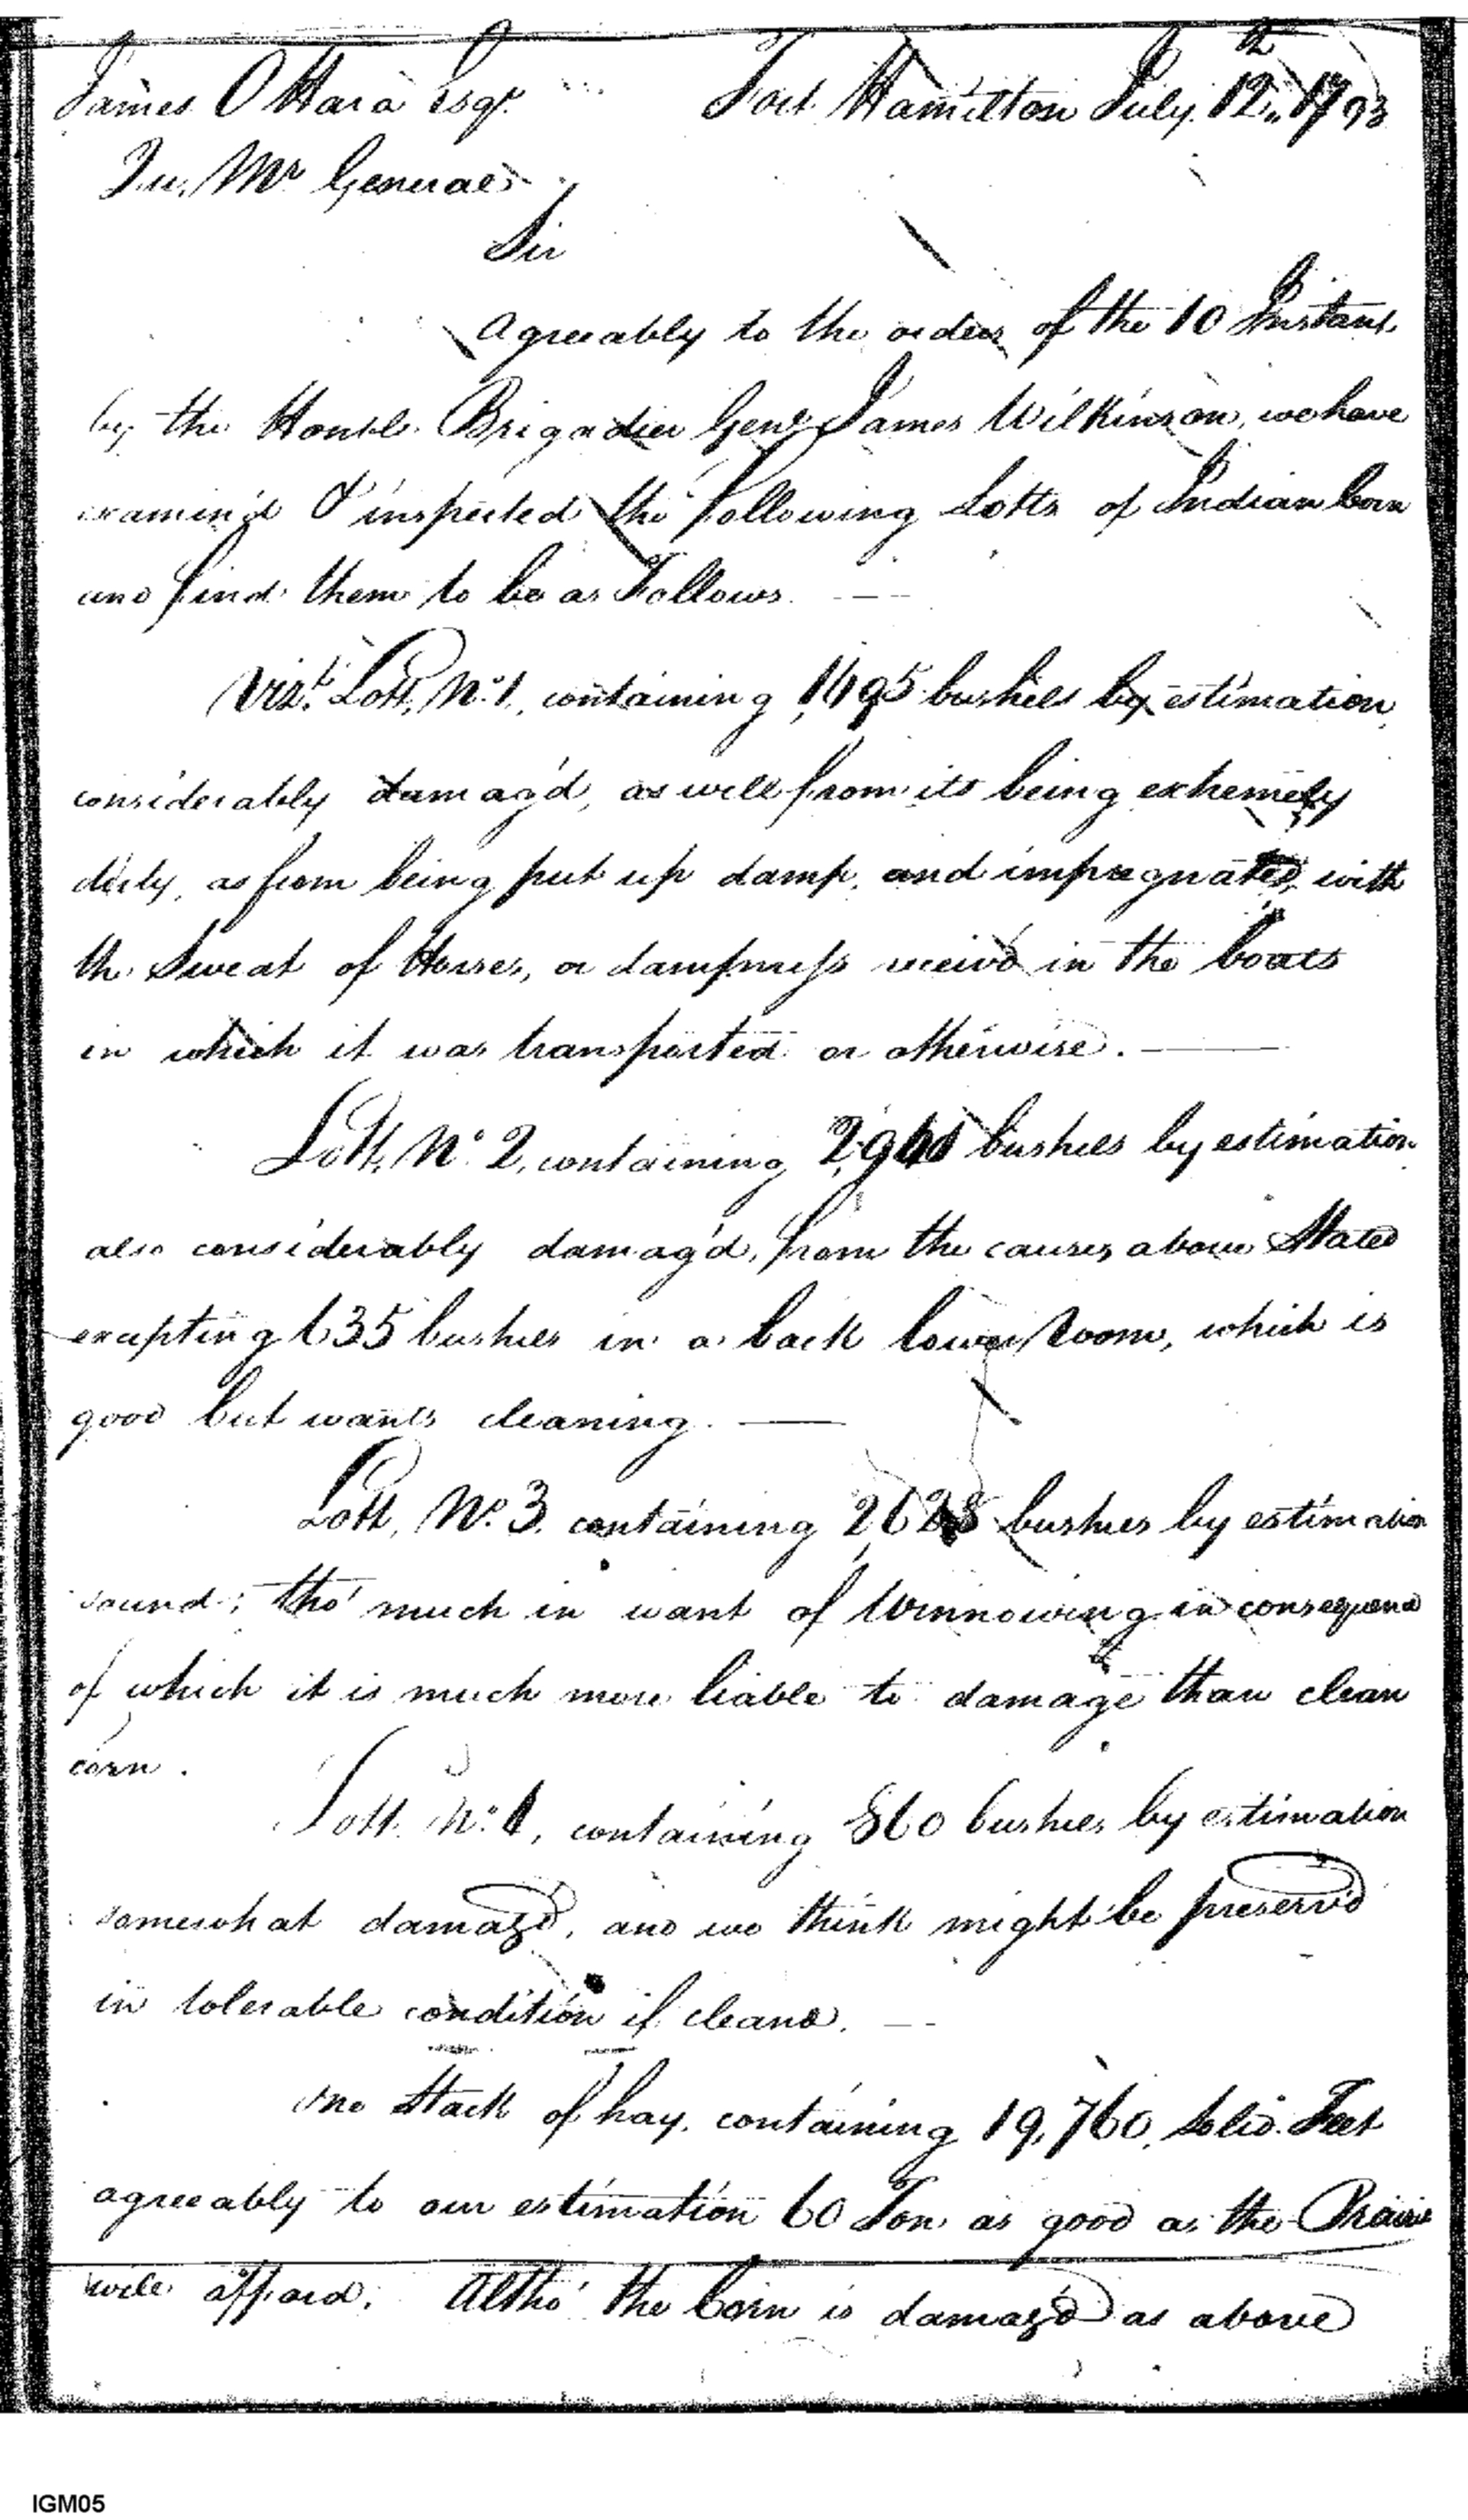 James O Hara Esqr. Fort Hamilton July 12th 1793
Qu. Mr General
Sir
Agreeably to the orders of the 10 Instant
by the Honble. Brigadier Genl. James Wilkinson, we have
examin'd & inspected the following Lotts of Indian Corn
and find them to be as Follows. —
Vizt. Lott, No. 1, containing 1,495 bushels by estimation,
considerably damag'd, as well from its being extremely
dirty, as from being put up damp, and impregnated, with
the Sweat of Horses, or dampness receiv'd in the boats
in which it was transported or otherwise. —
Lott, No. 2, containing bushels by estimation
also considerably damag'd, from the causes above Stated
excepting 635 bushels in a back lower Room, which is
good but wants cleaning. —
Lott, No. 3. containing bushels by estimation
sound; tho' much in want of Winnowing in consequence
of which it is much more liable to damage than clean
corn.
Lott. No. containing 860 bushels by estimation
somewhat damag'd, and we think might be preserv'd
in tolerable condition if cleand. —
One Stack of hay, containing 19,760, Solid Feet
agreeably to our estimation 60 Ton as good as the Prairie
will afford. Altho' the Corn is damag'd as above
IGM05